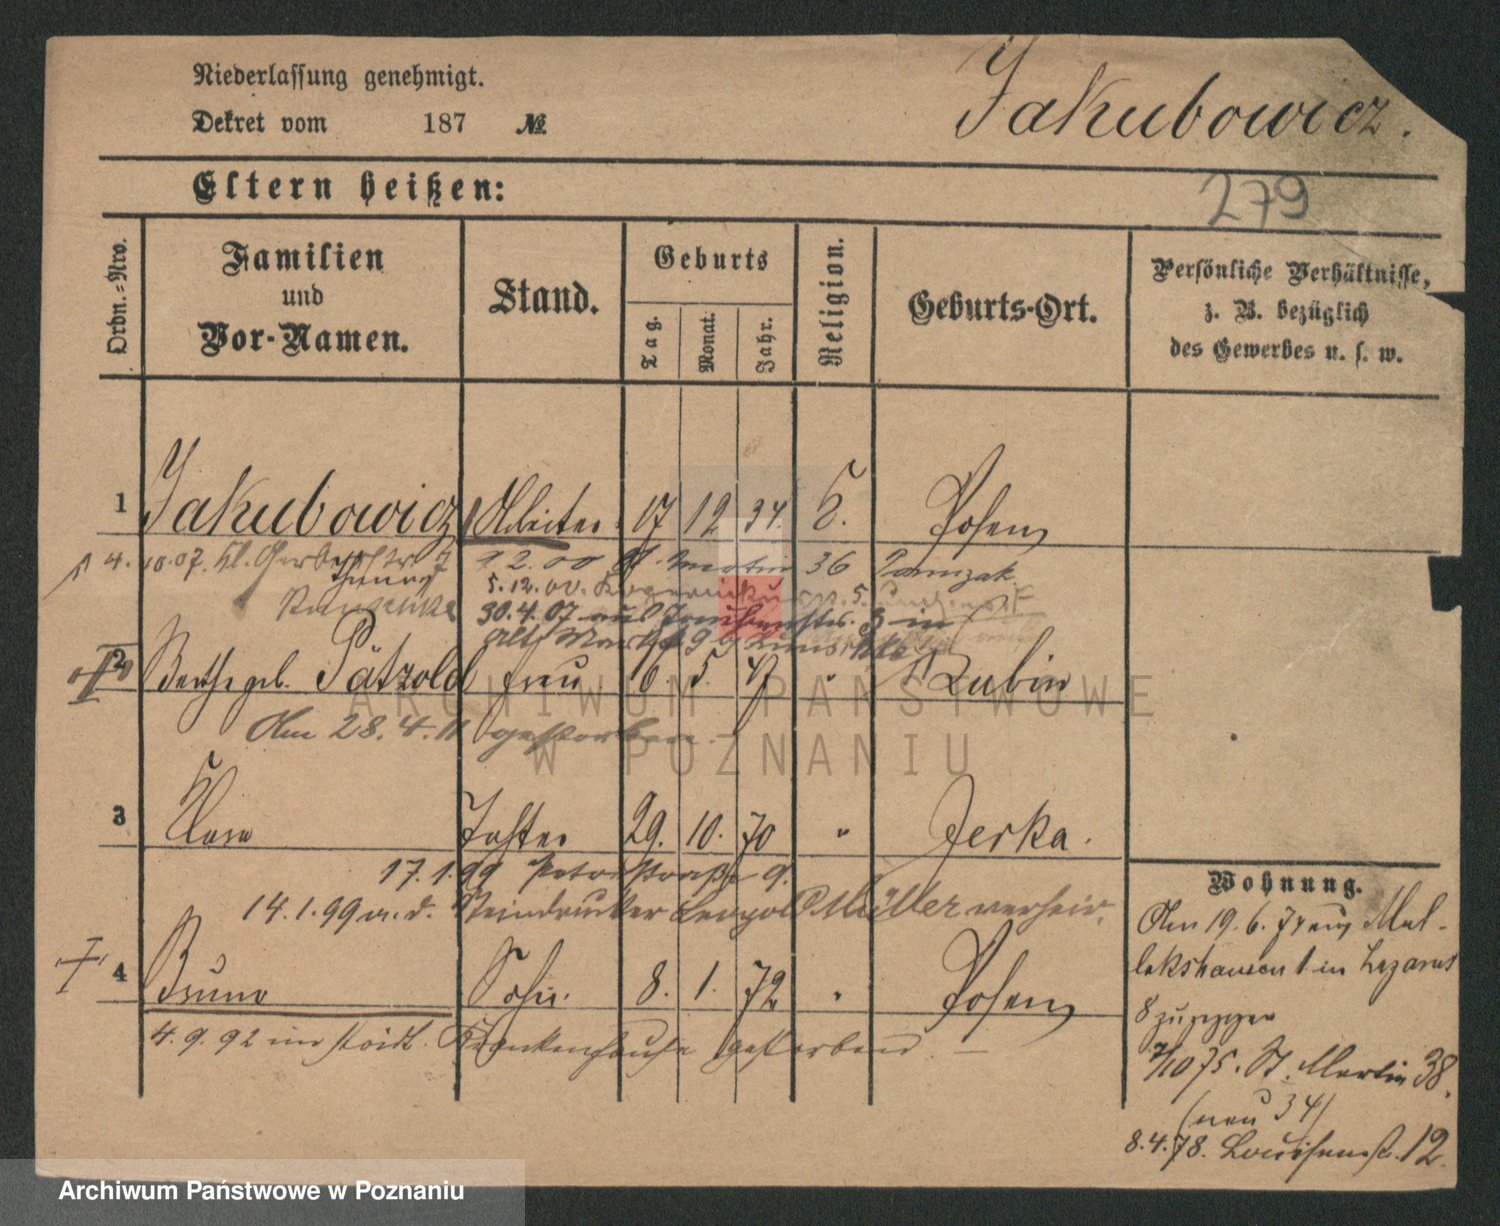 Niederlassung genehmigt.
Dekret vom 187 №
Jakubowicz.
Eltern heißen:
279
Ordn.-Nro.
Familien
und
Vor-Namen.
Stand.
Geburts
Tag.
Monat.
Jahr.
Religion.
Geburts-Ort.
Persönliche Verhältnisse,
z. B. bezüglich
des Gewerbes u. s. w.
1 Jakubowicz Arbeiter 17 12 34. Posen
4. 10.07. Kl. Gerberstr 7 9 2. 00 St. Martin 36
5. 12. 00.
30.4.07 aus 3 in
Alt. Markt 9
2 geb. Pätzold Frau 16. 5. Lubin
Am 28. 4. 11 gestorben.
3 Klara Tochter 29. 10. 70 " Jerka.
17. 1. 99 Petristraße 9.
14. 1. 99 m. d. Steindrucker Leopold Müller verheir.
4 Bruno Sohn. 8. 1. 72 " Posen
4. 9. 92 im städt. Krankenhause gestorben
Wohnung.
Am 19. 6. von Mal-
lekshausen 1 in Lazarus
8
/10 75. St. Martin 38.
(neu 34)
8. 4. 78. Louisenst. 12.
ARCHIWUM PAŃSTWOWE
W POZNANIU
Archiwum Państwowe w Poznaniu